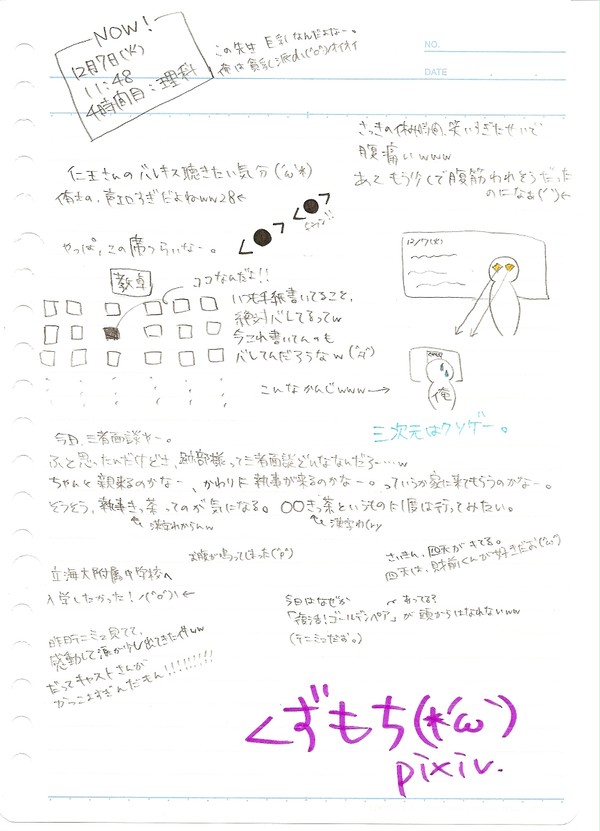 NOW!
12月7日(火)
11:48
4時間目:理科
この先生 巨乳なんだよなー。
俺は貧乳派d\(^o^)/オイオイ
NO.
DATE
さっきの休み時間、笑いすぎたせいで
腹痛いwww
あともう少しで腹筋われそうだった
のになぁ(´`)←
仁王さんのバレキス聴きたい気分(´ω`*)
声エロすぎだよねww28←
やっぱ、この席つらいなー。
教卓
ココなんだよ!!
いつも手紙書いてること、
絶対バレてるってw
今これ書いてんのも
バレてんだろうなw
こんなかんじwww→
12/7(火)
俺
三次元はクソゲー。
今日、三者面談やー。
ふと思ったんだけどさ、跡部様って三者面談どんなんだろー…w
ちゃんと親来るのかなー、かわりに執事が来るのかなー。っていうか家に来てもらうのかなー。
そうそう、執事きっ茶ってのが気になる。〇〇きっ茶というものに1度は行ってみたい。
漢字わからんw
漢字わ(ry
お腹が鳴ってしまった(^p^)
立海大附属中学校へ
入学したかった!\(^o^)\←
さいきん、四天がキてる。
四天は、財前くんが好きだお(´ω`)
昨日テニミュ見てて、
感動して涙が少し出てきた件ww
だってキャストさんが
かっこよすぎんだもん!!!!!!!!
今日はなぜか
あってる?
「復活!ゴールデンペア」が頭からはなれないww
(テニミュだお。)
くずもち(*´ω`)
pixiv.